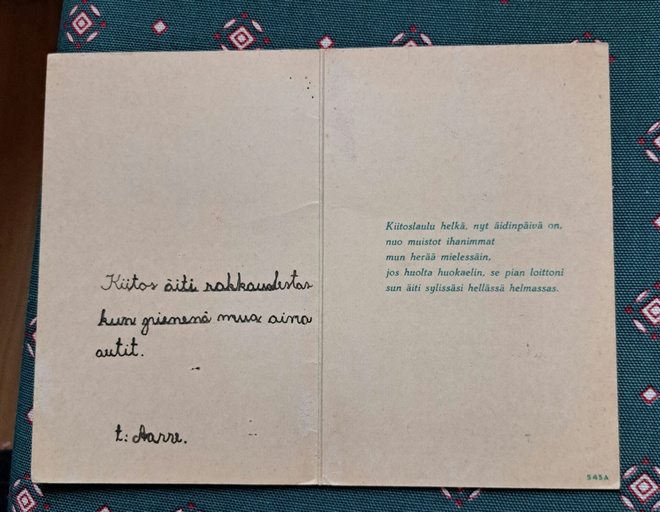 Kiitos äiti rakkaudestas
kun pienenä mua aina
autit.
t: Aarre.
Kiitoslaulu helkä, nyt äidinpäivä on,
nuo muistot ihanimmat
mun herää mielessäin,
jos huolta huokaelin, se pian loittoni
sun äiti sylissäsi hellässä helmassas.
545A